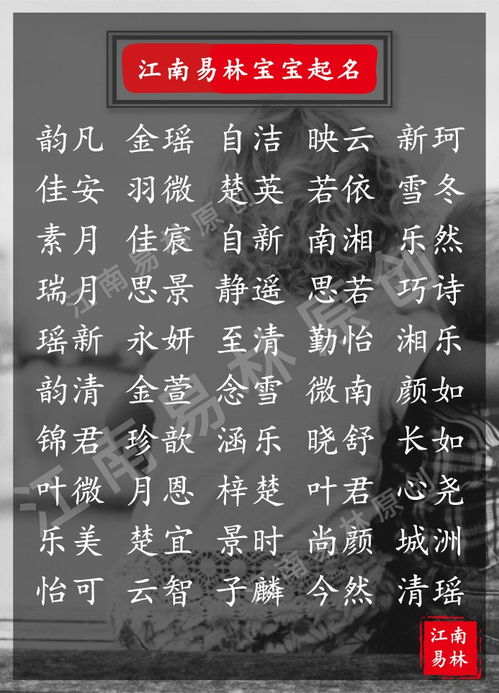 江南易林宝宝起名
韵凡 金瑶 自洁 映云 新珂
佳安 羽微 楚英 若依 雪冬
素月 佳宸 自新 南湘 乐然
瑞月 思景 静遥 思若 巧诗
瑶新 永妍 至清 勤怡 湘乐
韵清 金萱 念雪 微南 颜如
锦君 珍歆 涵乐 晓舒 长如
叶微 月恩 梓楚 叶君 心尧
乐美 楚宜 景时 尚颜 城洲
怡可 云智 子麟 今然 清瑶
江南易林原创
江南易林原创
江南易林原创
江南
易林